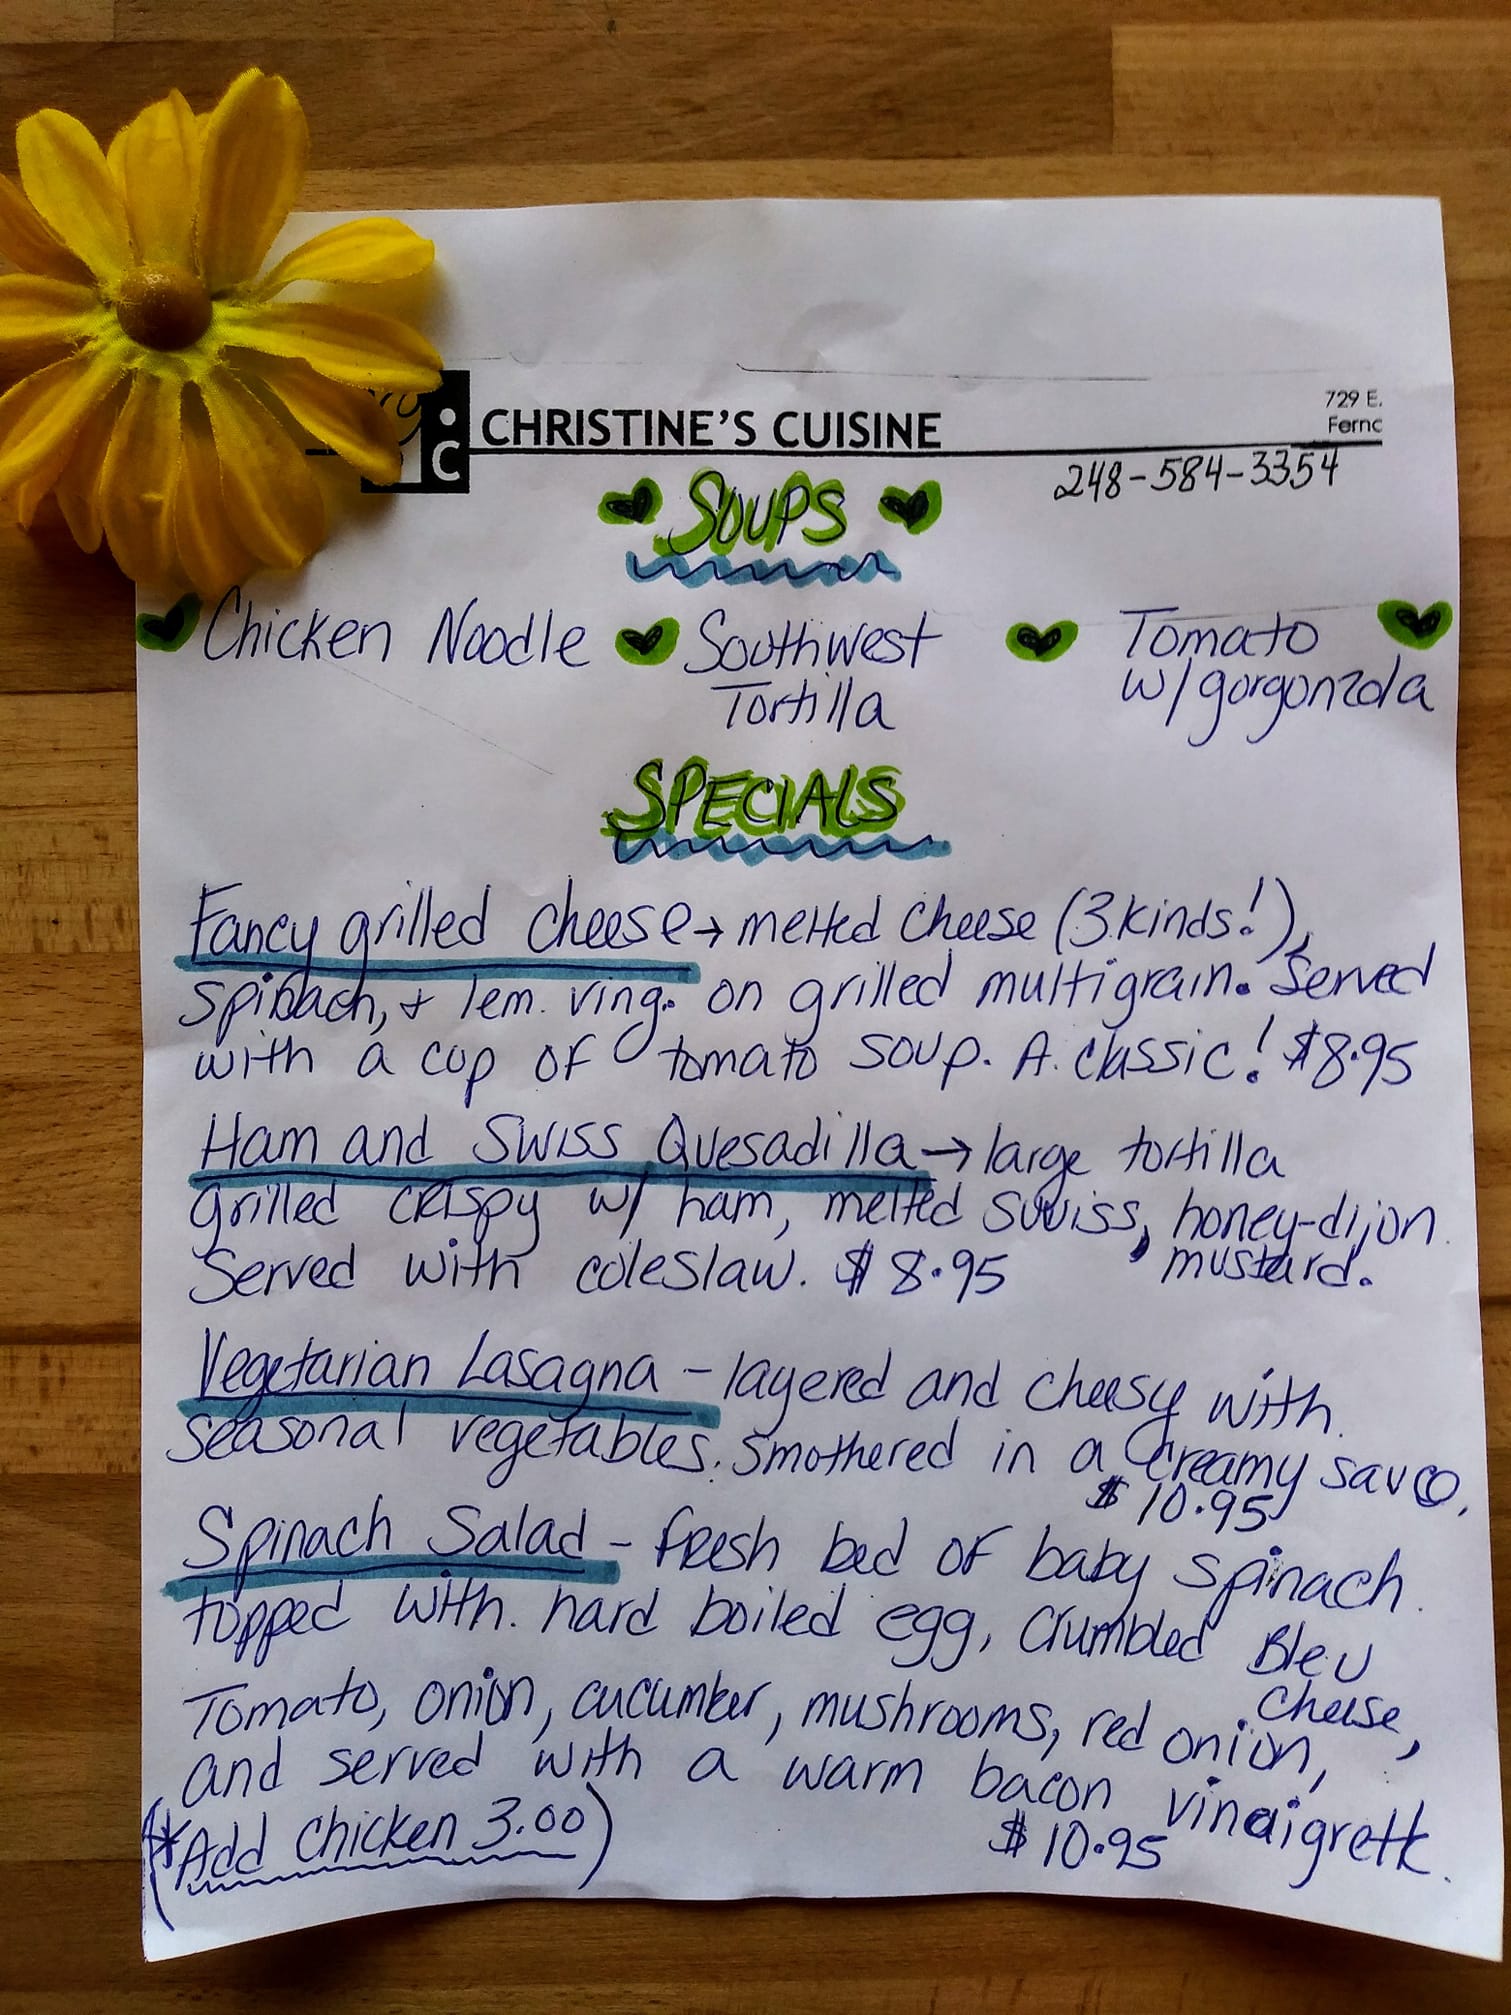 C CHRISTINE'S CUISINE
729 E.
Fernd
248-584-3354
SOUPS
Chicken Noodle Southwest Tortilla Tomato w/gorgonzola
SPECIALS
Fancy grilled cheese → melted cheese (3 kinds!),
spinach, + lem. ving. on grilled multigrain. Served
with a cup of tomato soup. A classic! $8.95
Ham and Swiss Quesadilla → large tortilla
grilled crispy w/ ham, melted swiss, honey-dijon
mustard.
Served with coleslaw. $8.95
Vegetarian Lasagna - layered and cheesy with
seasonal vegetables. Smothered in a creamy sauce.
$10.95
Spinach Salad - fresh bed of baby spinach
topped with hard boiled egg, crumbled Bleu
cheese,
Tomato, onion, cucumber, mushrooms, red onion,
and served with a warm bacon vinaigrette.
(*Add chicken 3.00)
$10.95